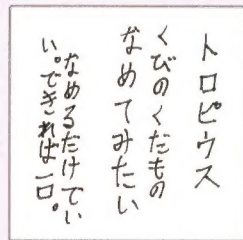 トロピウス
くびのくだもの
なめてみたい
なめるだけでい
い。できれば一口。